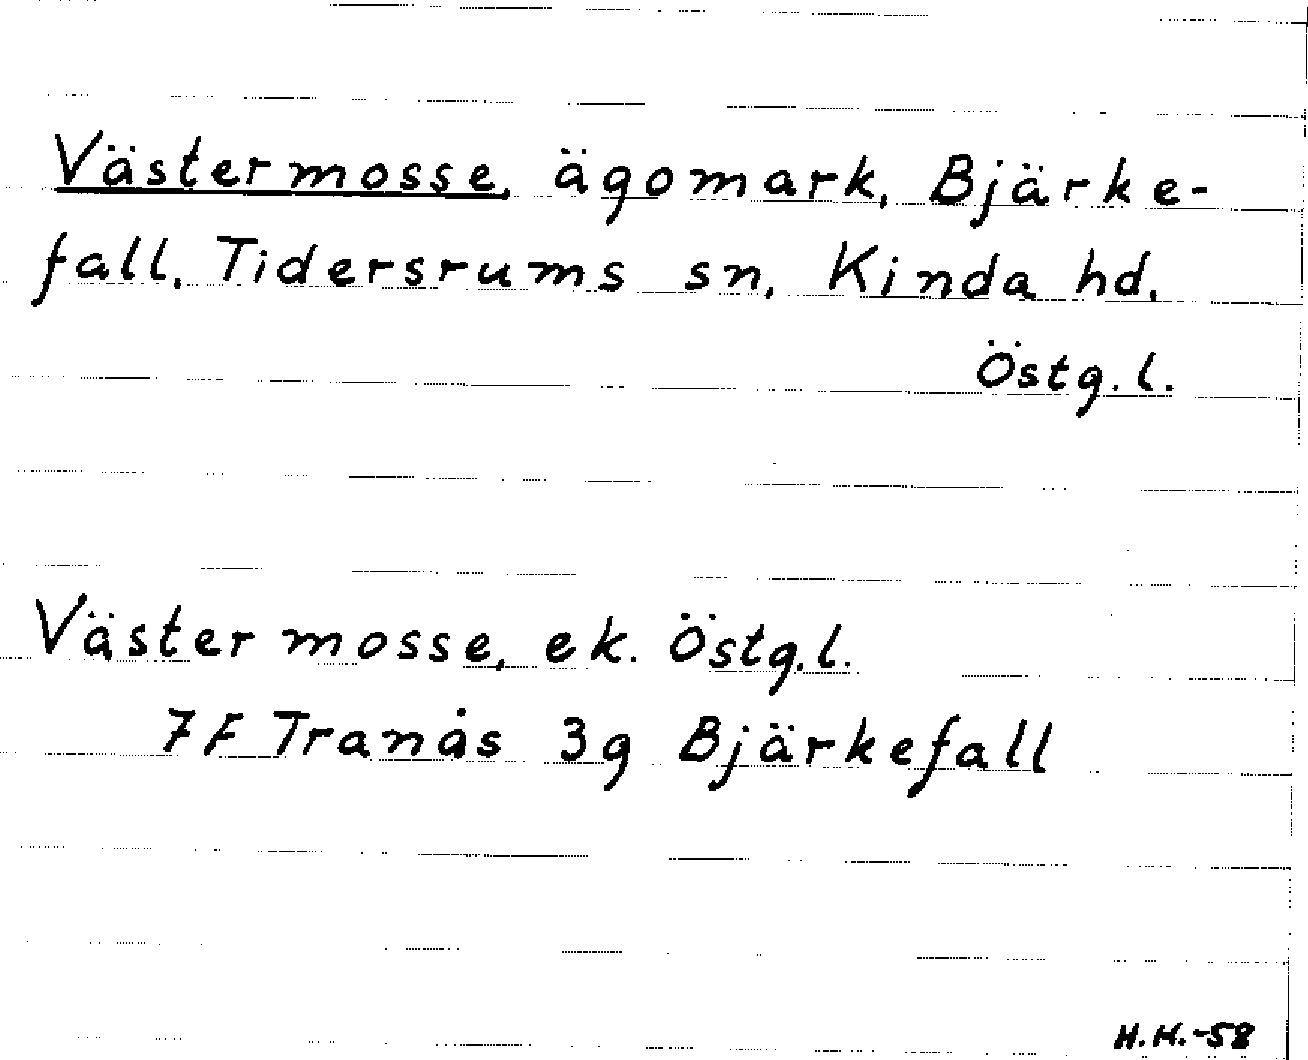 Västermosse, ägomark, Bjärke-
fall, Tidersrums sn, Kinda hd,
Östg. l.
Västermosse, ek. Östg. l.
7F Tranås 3g Bjärkefall
H.H.-58